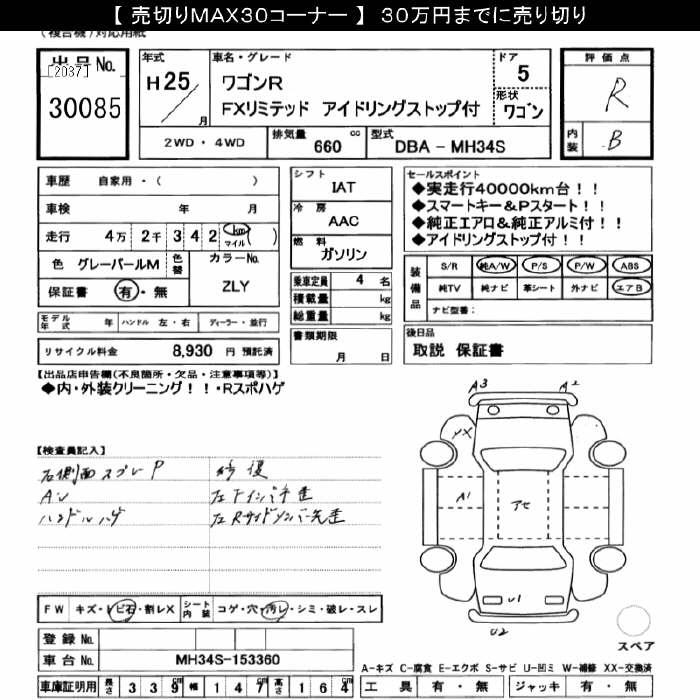 【 売切りMAX30コーナー 】 30万円までに売り切り
(複合機)対応用紙
出品No.
[2037]
30085
年式
H 25
月
車名・グレード
ワゴンR
FXリミテッド アイドリングストップ付
ドア
5
形状
ワゴン
評価点
R
内装
B
2WD・4WD
排気量
660
cc
型式
DBA - MH34S
車歴 自家用・( )
車検 年 月
走行 4万 2千 3 4 2 km マイル ( )
色 グレーパールM
色替
カラーNo.
ZLY
保証書 有・無
シフト
IAT
冷房
AAC
燃料
ガソリン
乗車定員 4 名
積載量 kg
総重量 kg
書類期限
月 日
セールスポイント
◆実走行40000km台！！
◆スマートキー&Pスタート！！
◆純正エアロ&純正アルミ付！！
◆アイドリングストップ付！！
装備品
S/R 純A/W P/S P/W ABS
純TV 純ナビ 革シート 外ナビ エアB
ナビ型番:
モデル年式 年 ハンドル 左・右 ディーラー・並行
リサイクル料金 8,930 円 預託済
後日品
取説 保証書
【出品店申告欄(不良箇所・欠品・注意事項等)】
◆内・外装クリーニング！！・Rスポハゲ
【検査員記入】
右側面スプレP
修復
AU
ハンドルハゲ
A3
A2
XX
A1
アセ
U1
U2
FW キズ・トビ石・割レX
シート内装 コゲ・穴・汚レ・シミ・破レ・スレ
登録No.
車台No. MH34S-153360
車庫証明用 長さ 3 3 9 cm 幅 1 4 7 cm 高さ 1 6 4 cm
スペア
A-キズ C-腐食 E-エクボ S-サビ U-凹ミ W-補修 XX-交換済
工具 有・無 ジャッキ 有・無